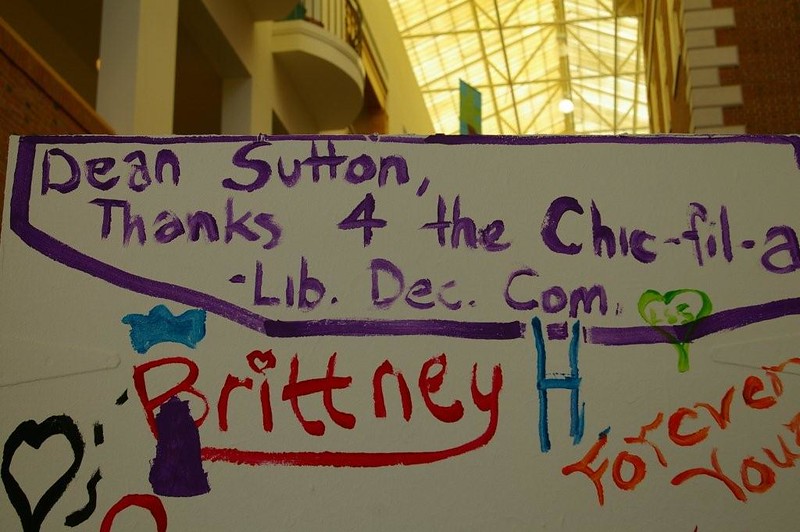 Dean Sutton,
Thanks 4 the Chic-fil-a
-Lib. Dec. Com.
Brittney H
Forever
Your